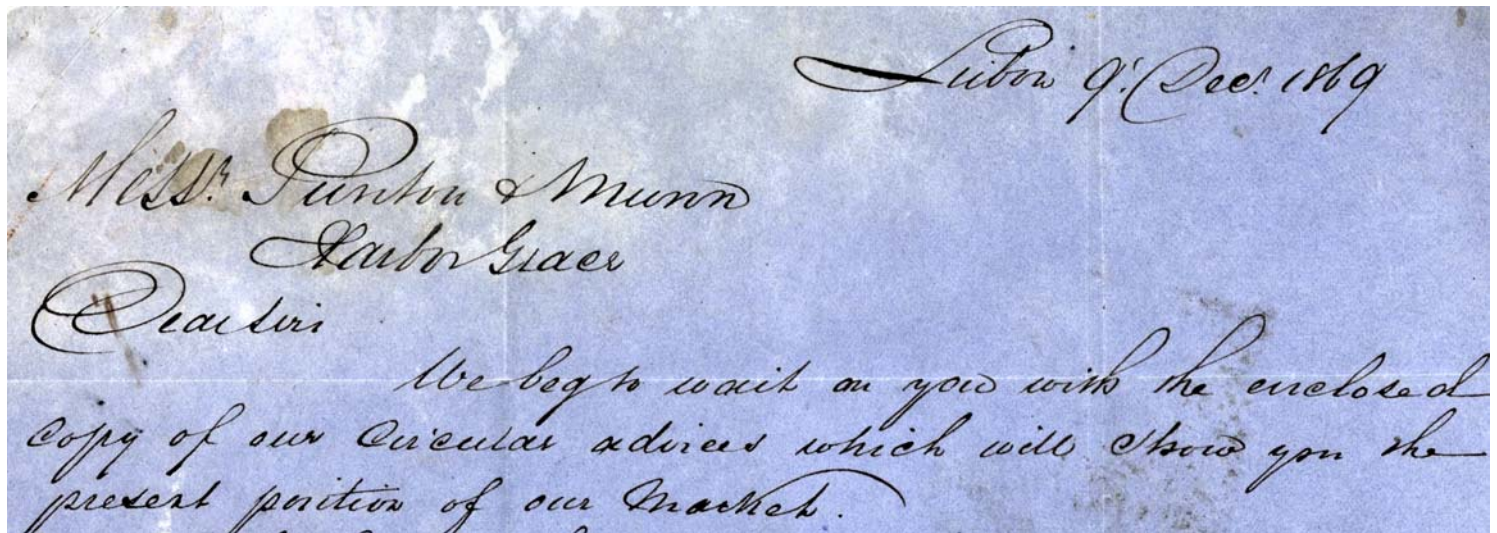 Lisbon 9. Decr. 1869
Messrs. Punton & Munn
Harbor Grace
Dear Sirs
We beg to wait on you with the enclosed
Copy of our Circular advices which will show you the
present position of our Market.